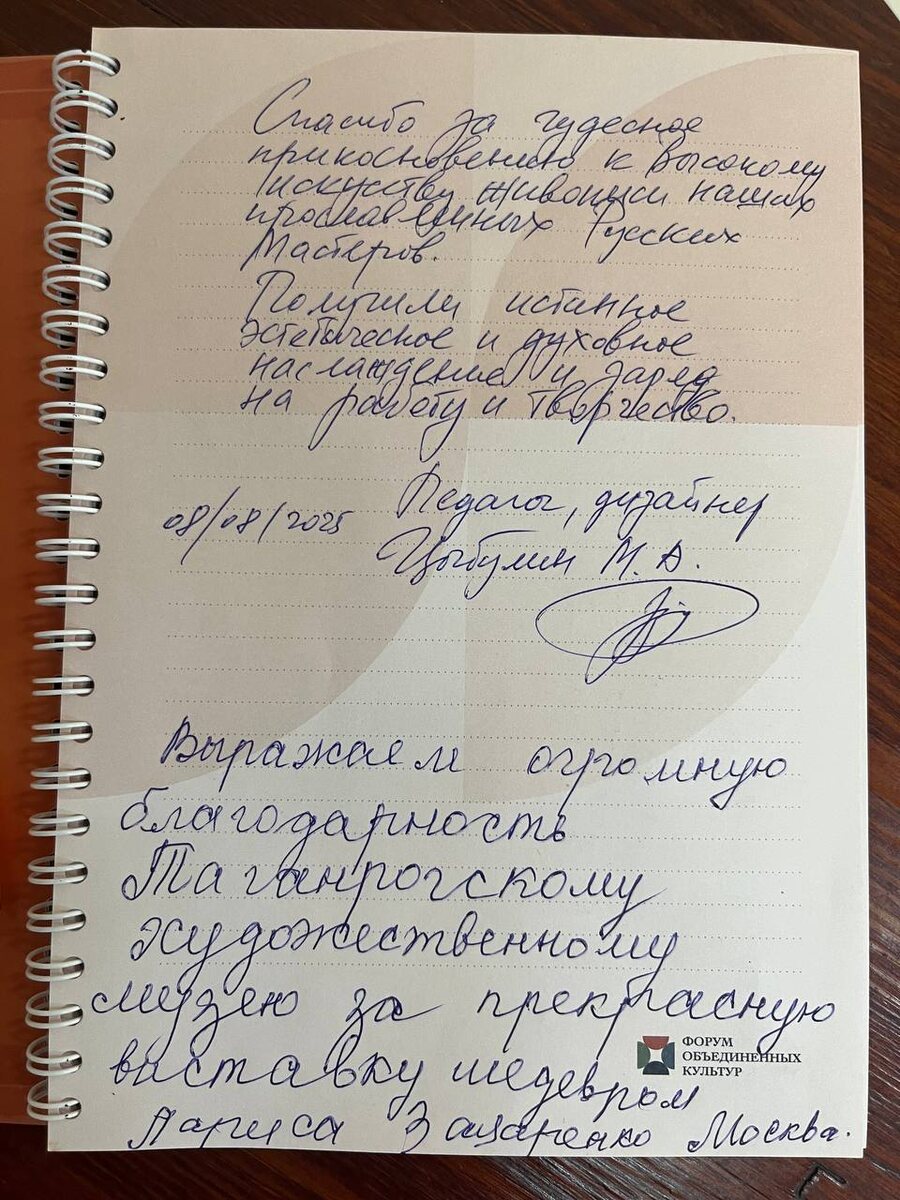 Спасибо за чудесное
прикосновению к Высокому
искуству живописи наших
прославленных Русских
Мастеров.
Получили истинное
эстетическое и духовное
наслаждение и заряд
на работу и творчество.
08/08/2025
Педагог, дизайнер
Цыбулин М. А.
Выражаем огромную
благодарность
Таганрогскому
художественному
музею за прекрасную
виставку шедевром
Лариса Москва.
ФОРУМ
ОБЪЕДИНЕННЫХ
КУЛЬТУР